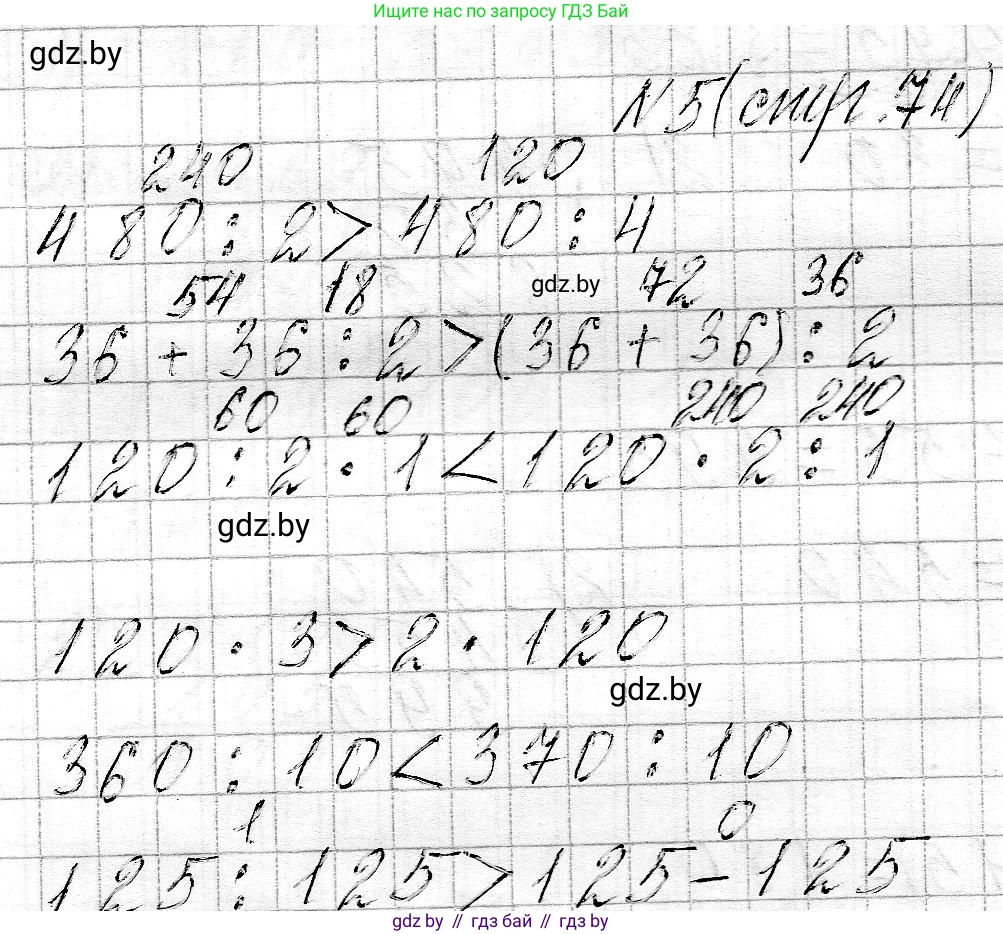 Ищите нас по запросу ГДЗ Бай
gdz.by
№5(стр.74)
240 120
480 : 2 > 480 : 4
54 18 gdz.by 72 36
36 + 36 : 2 > (36 + 36) : 2
60 60 240 240
120 : 2 · 1 < 120 · 2 : 1
gdz.by
120 · 3 > 2 · 120
gdz.by
360 : 10 < 370 : 10
1 0
125 : 125 > 125 - 125
gdz by // гдз бай // гдз by